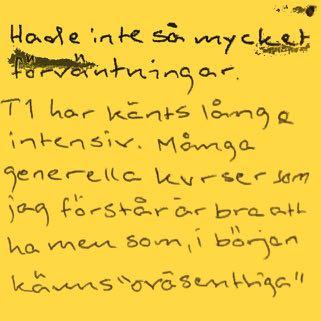 Hade inte så mycket
förväntningar.
T1 har känts långa
intensiv. Många
generella kurser som
jag förstår är bra att
ha men som, i början
känns "oväsentliga"